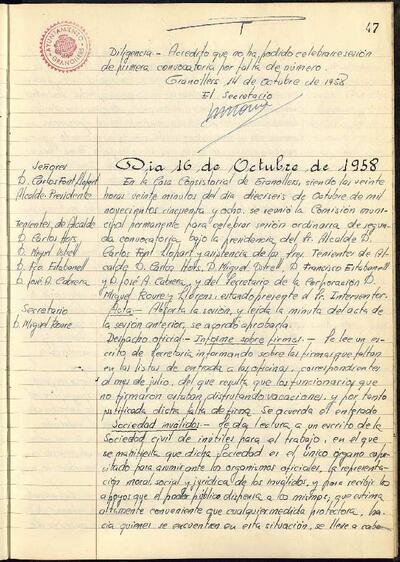 47
AYUNTAMIENTO
GRANOLLERS
Diligencia.- Acredito que no ha podido celebrarse sesión
de primera convocatoria por falta de número.
Granollers 14 de Octubre de 1958
El Secretario
Señores
D. Carlos Font Llopart
Alcalde-Presidente
Tenientes de Alcalde
D. Carlos Hors
D. Miguel
D. Fco Estabanell
D. José A. Cabrera
Secretario
D. Miguel Roure
Dia 16 de Octubre de 1958
En la Casa Consistorial de Granollers, siendo las veinte
horas veinte minutos del día dieciseis de Octubre de mil
novecientos cincuenta y ocho, se reunió la Comisión muni-
cipal permanente para celebrar sesión ordinaria de segun-
da convocatoria, bajo la presidencia del Sr. Alcalde D.
Carlos Font Llopart y asistencia de los Srs. Tenientes de Al-
calde D. Carlos Hors, D. Miguel D. Francisco Estabanell
y D. José A. Cabrera, y del Secretario de la Corporación D.
Miguel Roure y Llorens, estando presente el Sr. Interventor.
Acta.- Abierta la sesión, y leída la minuta del acta de
la sesión anterior, se acordó aprobarla.
Despacho oficial.- Informe sobre firmas.- Se lee un es-
crito de Secretaría informando sobre las firmas que faltan
en las listas de entrada a las oficinas, correspondientes
al mes de julio, del que resulta que los funcionarios que
no firmaron estaban disfrutando vacaciones, y por tanto
justificada dicha falta de firma. Se acuerda el enterado.
Sociedad inválidos.- Se da lectura a un escrito de la
Sociedad civil de inútiles para el trabajo, en el que
se manifiesta que dicha Sociedad es el único órgano capa-
citado para asumir ante los organismos oficiales, la representa-
ción moral, social y jurídica de los inválidos, y para recibir los
apoyos que el poder público dispensa a los mismos; que estima
altamente conveniente que cualquier medida protectora, ha-
cia quienes se encuentren en esta situación, se lleve a cabo